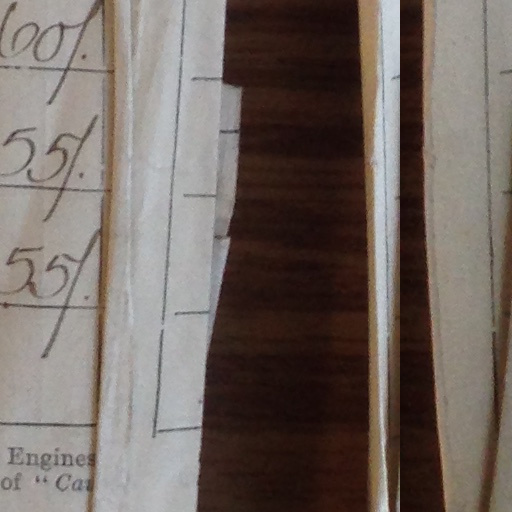 60/.
55/.
55/.
Engines
of "Ca